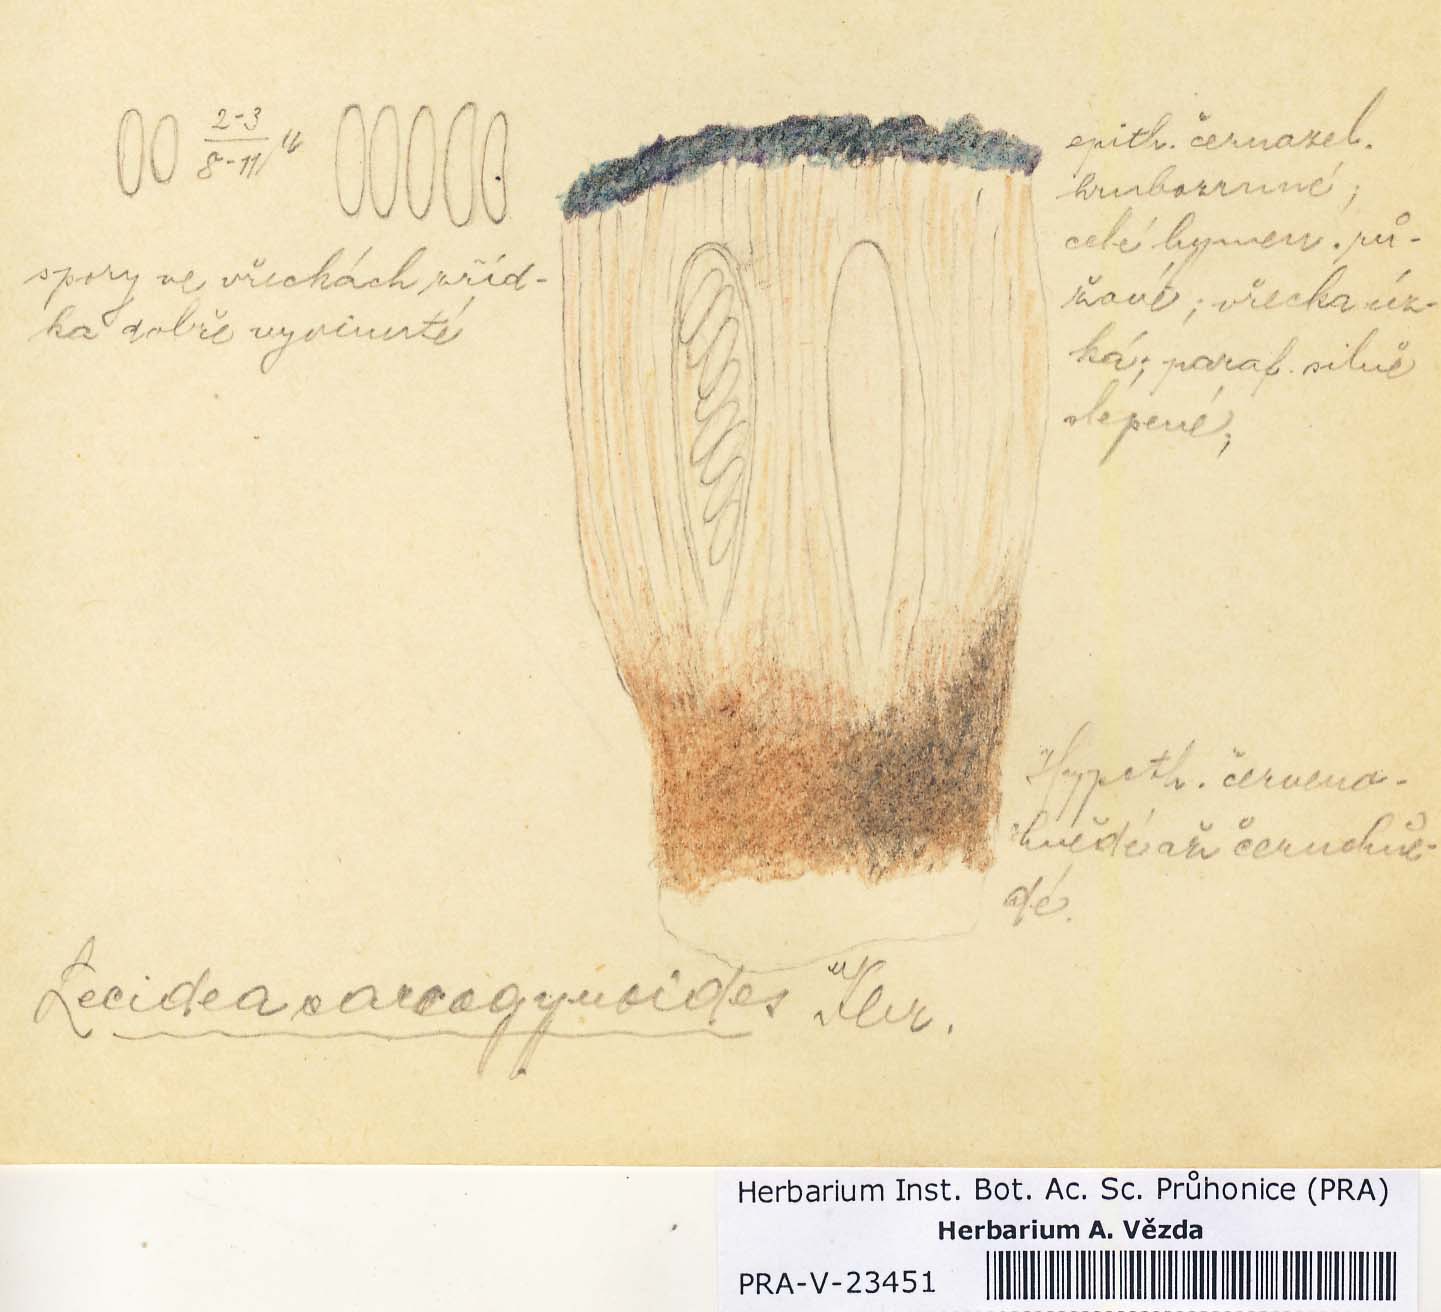 2-3
8-11 µ
spory ve vřeckách zříd-
ka dobře vyvinuté
epith. černozel.
hrubozrnné;
celé hymen. rů-
žové; vřecka úz-
ká; paraf. silně
slepené;
Hypoth. červeno-
hnědé až černohně-
dé.
Lecidea sarcogynoides Kbr.
Herbarium Inst. Bot. Ac. Sc. Průhonice (PRA)
Herbarium A. Vězda
PRA-V-23451